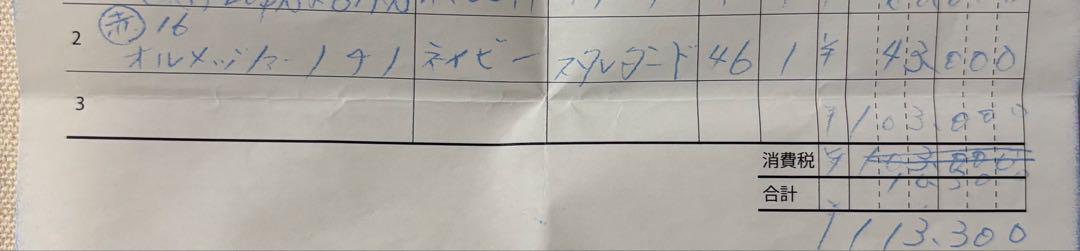 赤 16
2 オルメッジャー 141 ネイビー スタンダード 46 1 ¥ 43,000
3 ¥ 103,000
消費税 ¥ 103,000
10,300
合計
¥ 113,300